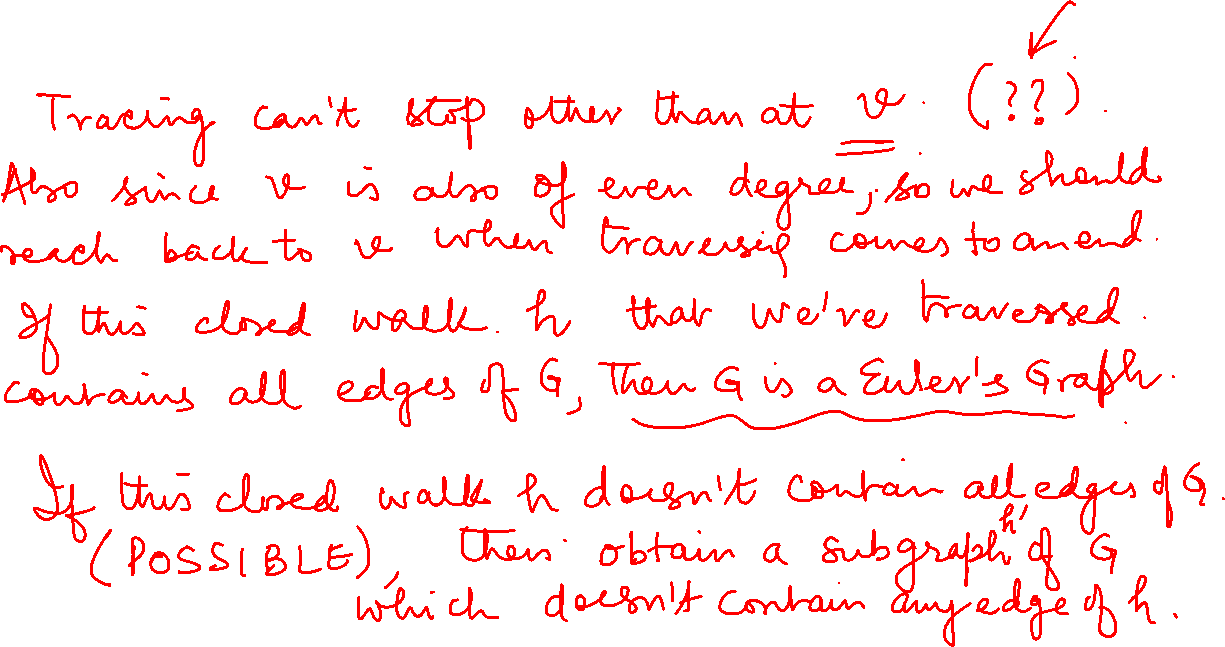 Tracing can't stop other than at v. (??).
Also since v is also of even degree, so we should
reach back to v when traversig comes to an end.
If this closed walk h that we've traversed
contains all edges of G, Then G is a Euler's Graph.
If this closed walk h doesn't contain all edges of G.
(POSSIBLE), then obtain a subgraph h' of G
which doesn't contain any edge of h.